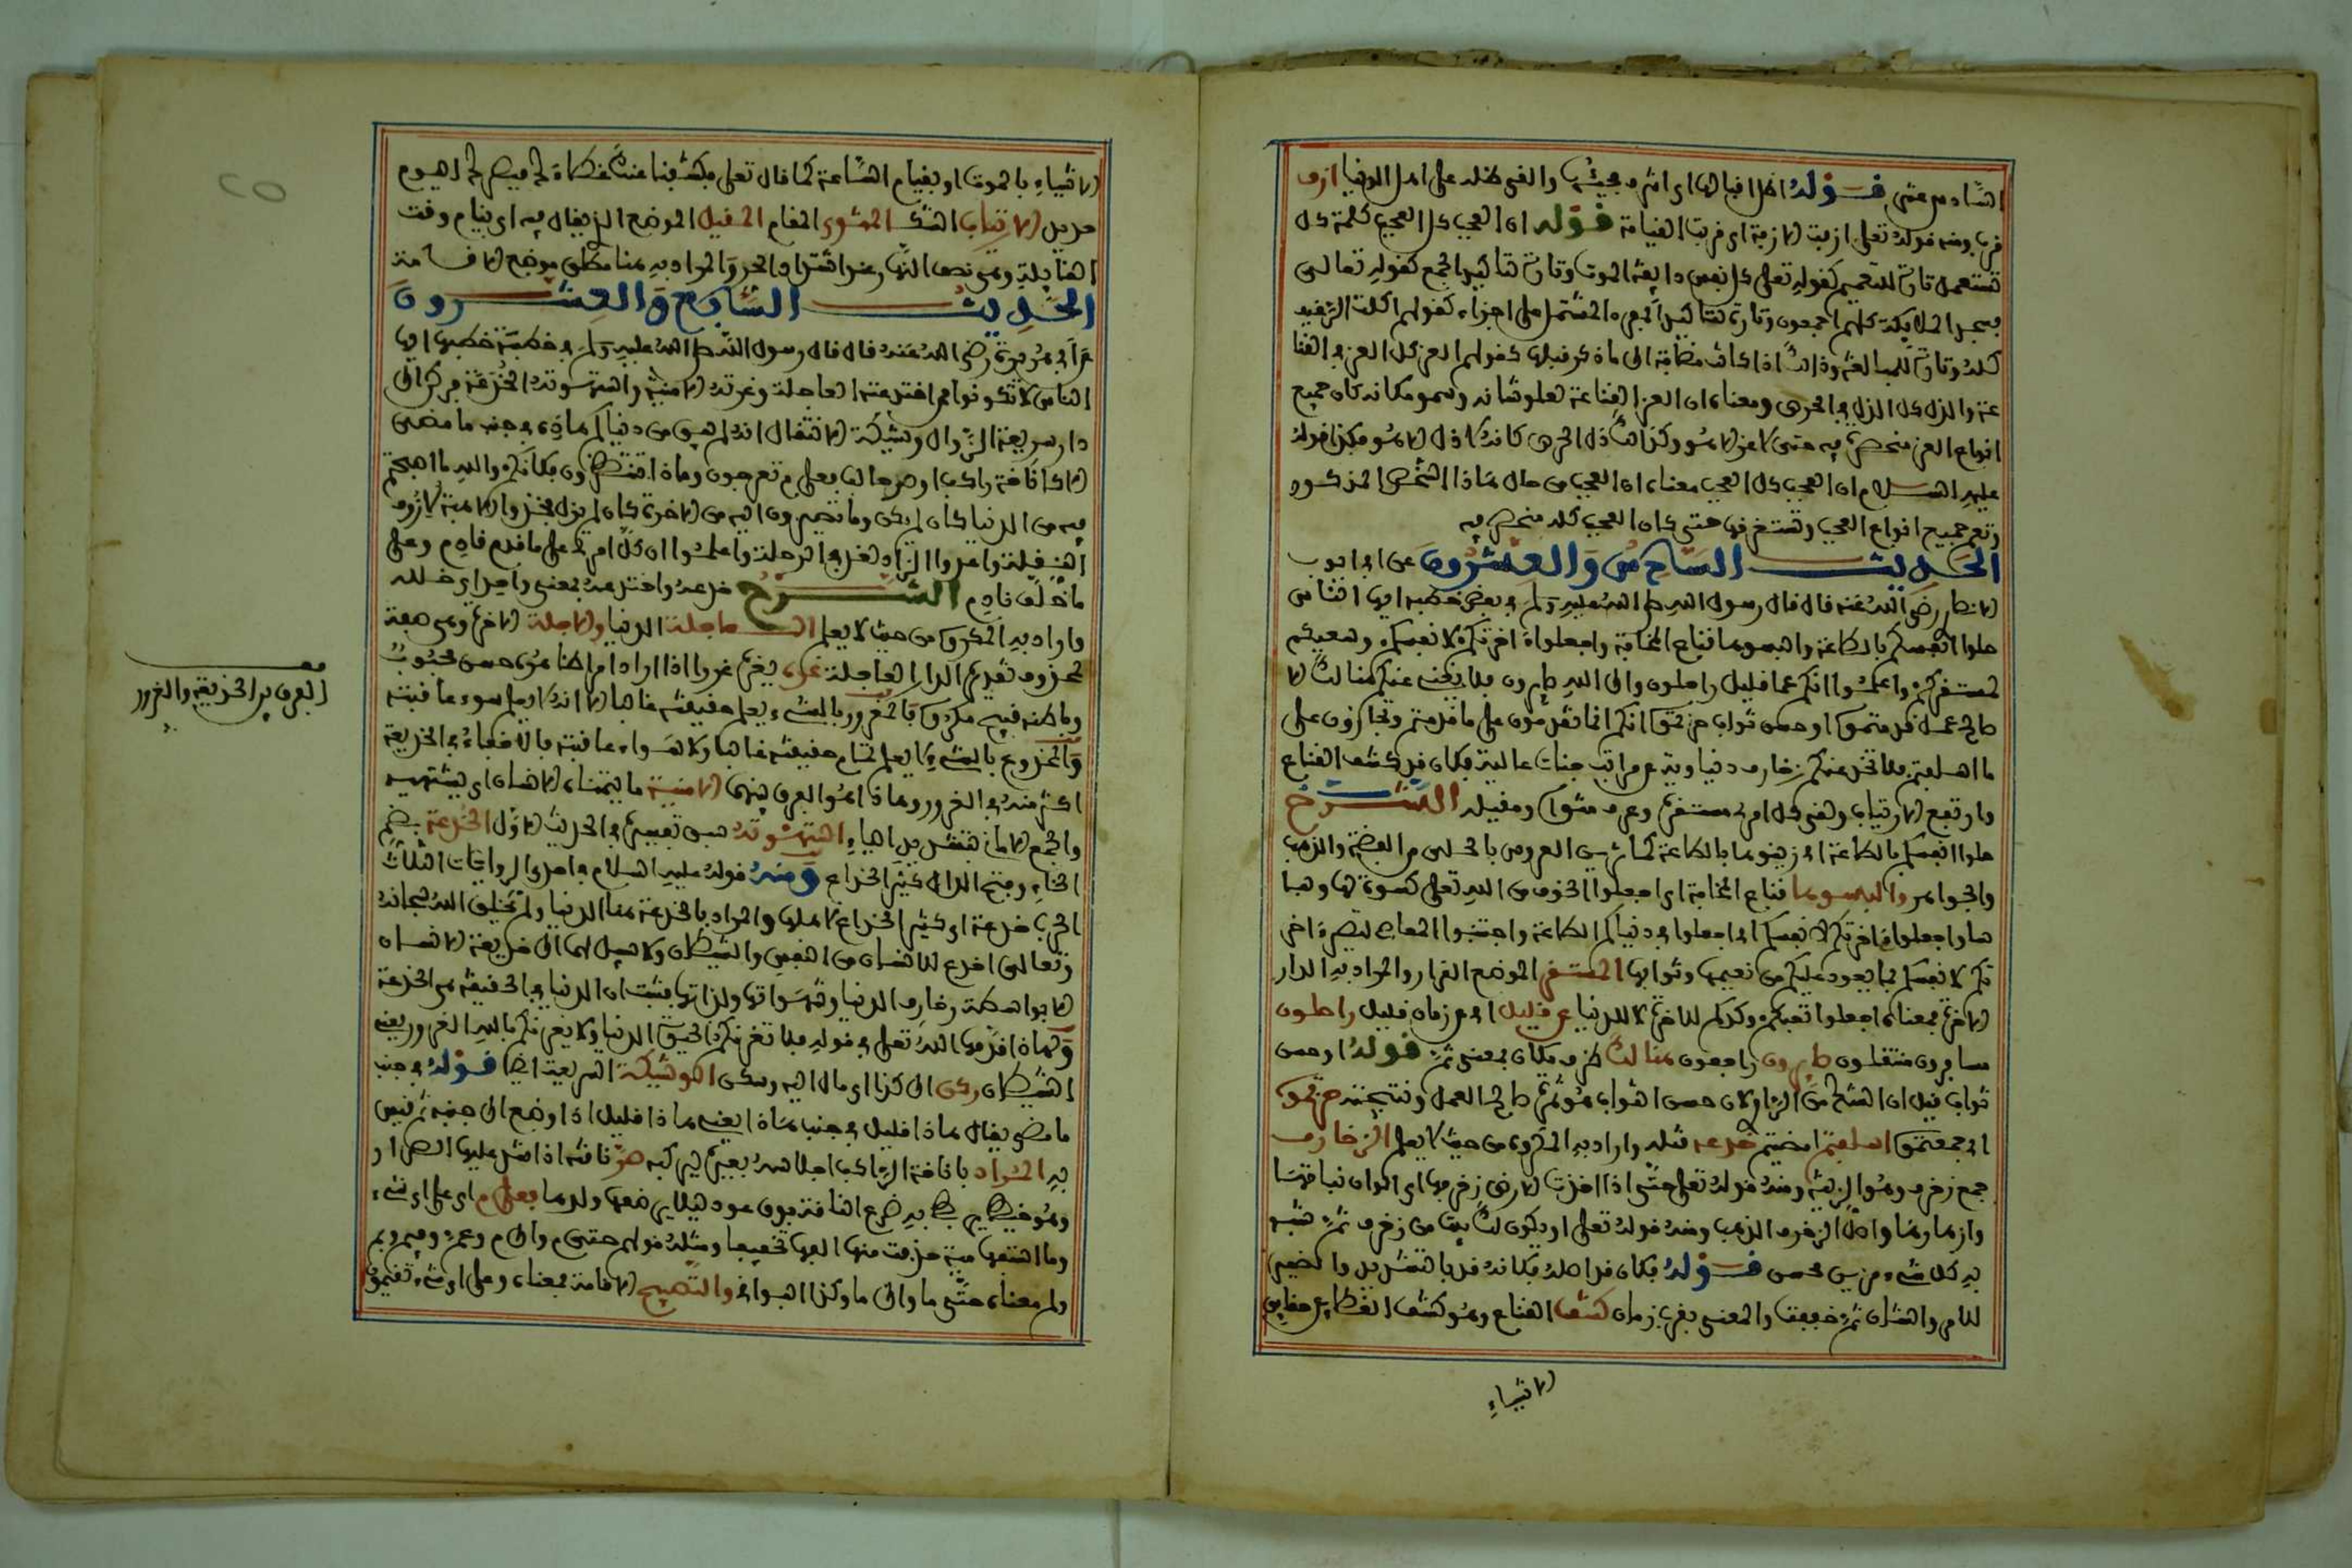 السادس عشر قوله اظل اقبالها اى اشرف مجيئها والقى ظله على اهل الدنيا ازف
قرب ومنه قوله تعلى ازفت الازفة اى قربت القيامة قوله ان العجب كل العجب كلمة كل
تستعمل تارة للتعميم كقوله تعلى كل نفس ذايقة الموت وتارة لتاكيد الجمع كقوله تعالى
فسجد الملايكة كلهم اجمعون وتارة لتاكيد المشتمل على اجزاء كقولهم اكلت الرغيف
كله وتارة للمبالغة وذلك اذا كانت مضافة الى ما ذكر قبلها كقولهم العز كل العز فى القنا
عة والذل كل الذل فى الحرص ومعناه ان العز القناعة لعلو شانه وسمو مكانه كان جميع
انواع العز منحصرة فيه حتى لا عز الا هو وكذلك ذل الحرص كانه لا ذل الا هو فكذا قوله
عليه السلام ان العجب كل العجب معناه ان العجب من حال هذا الشخص المذكور
وتعم جميع انواع العجب حتى كان العجب كله منحصر فيه
الحديث السادس والعشرون عن ابى ايوب
الانصارى رضى الله عنه قال قال رسول الله صلى الله عليه وسلم فى بعض خطبه ايها الناس
حلوا انفسكم بالطاعة والبسوها قناع المخافة واجعلوا اخرتكم لانفسكم وسعيكم
لمستقركم واعلموا انكم عما قليل راحلون والى الله صايرون فلا يغنى عنكم هنالك الا
صالح عمل قدمتموه او حسن ثواب حزتموه انكم انما تقدمون على ما قدمتم وتجازون على
ما اسلفتم فلا تخدعنكم زخارف دنيا دنية عن مراتب جنات عالية فكان قد كشف القناع
وارتفع الارتياب ولقى كل امرئ مستقره وعرف مثواه ومقيله الشرح
حلوا انفسكم بالطاعة اى زينوها بالطاعة كما تزين العروس بالحلى من الفضة والذهب
والجواهر والبسوها قناع المخافة اى اجعلوا الخوف من الله تعلى كسوة لها ولبا
سا واجعلوا اخرتكم لانفسكم اى اجعلوا فى دنياكم الطاعة واجتنبوا المعاصى لتصير اخر
تكم لانفسكم بما يعود عليكم من نعيمها وثوابها المستقر الموضع القرار والمراد به الدار
الاخرة بمعناه اجعلوا تعبكم وكدكم للاخرة لا للدنيا عن قليل اى عن زمان قليل راحلون
مسافرون منتقلون صايرون راجعون هنالك ظرف مكان بمعنى ثم قوله او حسن
ثواب قيل ان ولان حسن الثواب هو ثمرة صالح العمل ونتيجته حزتموه
اى جمعتموه اسلفتم امضيتم خدعه ختله واراد به المكروه من حيث لا يعلم الزخارف
جمع زخرف وهو الزينة ومنه قوله تعلى حتى اذا اخذت الارض زخرفها اى الوان نباتها
وازهارها واصل الزخرف الذهب ومنه قوله تعلى او يكون لك بيت من زخرف ثم شبه
به كل شىء مزين محسن قوله فكان قد اصله فكانه قد بالتشديد والضمير
للامر والشان ثم خففت والمعنى بقرب زمان كشف القناع وهو كشف الغطاء عن حقايق
الاشياء
الاشياء بالموت او بقيام الساعة كما قال تعلى فكشفنا عنك غطاءك فبصرك اليوم
حديد الارتياب الشك المثوى المقام المقيل الموضع الذى يقال فيه اى ينام وقت
القايلة وهى نصف النهار عند اشتداد الحر والمراد به هنا مطلق موضع الاقامة
الحديث السابع والعشرون
عن ابى هريرة رضى الله عنه قال قال رسول الله صلى الله عليه وسلم فى خطبة خطبها ايها
الناس لا تكونوا ممن اختدعته العاجلة وغرته الامنية واستهوته الخدعة فركن الى
دار سريعة الزوال وشيكة الانتقال انه لم يبق من دنياكم هذه فى جنب ما مضى
الا كاناخة راكب او صر حالب فعلى م تعرجون وماذا تنتظرون فكانكم والله ما اصبحتم
فيه من الدنيا كان لم يكن وما تصيرون اليه من الاخرة كان لم يزل فخذوا الاهبة لازوف
النقلة واعدوا الزاد لقرب الرحلة واعلموا ان كل امرئ على ما قدم قادم وعلى
ما خلف نادم الشرح خدعه واختدعه بمعنى واحد اى ختله
واراد به المكروه من حيث لا يعلم العاجلة الدنيا والاجلة الاخرة وهى صفة
لمحذوف تقديره الدار العاجلة غره يغره غرورا اذا اراه امرا ظاهره حسن محبوب
وباطنه قبيح مكروه فالمغرور بالشىء يعلم حقيقته غالبا الا انه لا يعلم سوء عاقبته
والمخدوع بالشىء لا يعلم تمام حقيقته غالبا ولا سواء عاقبته فالاخفاء فى الخديعة
اكثر منه فى الغرور وهذا هو الفرق بينهما الامنية ما يتمناه الانسان اى يشتهيه
والجمع الامانى بتشديد الياء استهوته سبق تفسيره فى الحديث الاول الخدعة بضم
الخاء وفتح الدال كثير الخداع ومنه قوله عليه السلام فى احدى الروايات الثلاث
الحرب خدعة اى كثير الخداع لاهلها والمراد بالخدعة هنا الدنيا ولم يخلق الله سبحانه
وتعالى اخدع للانسان من النفس والشيطان ولا سبيل لهما الى خديعة الانسان
الا بواسطة زخارف الدنيا وشهواتها ولذاتها فثبت ان الدنيا فى الحقيقة هى الخدعة
ولهذا افردها الله تعلى فى قوله فلا تغرنكم الحيوة الدنيا ولا يغرنكم بالله الغرور يعنى
الشيطان ركن الى كذا اى مال اليه وسكن الوشيكة السريعة ايضا قوله فى جنب
ما مضى يقال هذا قليل فى جنب هذا يعنى هذا قليل اذا وضع الى جنبه ثم قيس
به المراد باناخة الراكب اجلاسه بعيره ليركبه صر ناقته اذا شد عليها الصرار
وهو خيط يربط به ضرع الناقة فوق عود ليلا يرضعها ولدها فعلى م اى على اى شىء
وما استفهامية حذفت منها الفها تخفيفا ومثله قولهم حتى م والى م وعم وفيم وبم
ولم معناه حتى ما والى ما وكذا البواقى والتعريج الاقامة بمعناه وعلى اى شىء تقيمون
معـ
الفرق بين الخديعة والغرور
٢٥